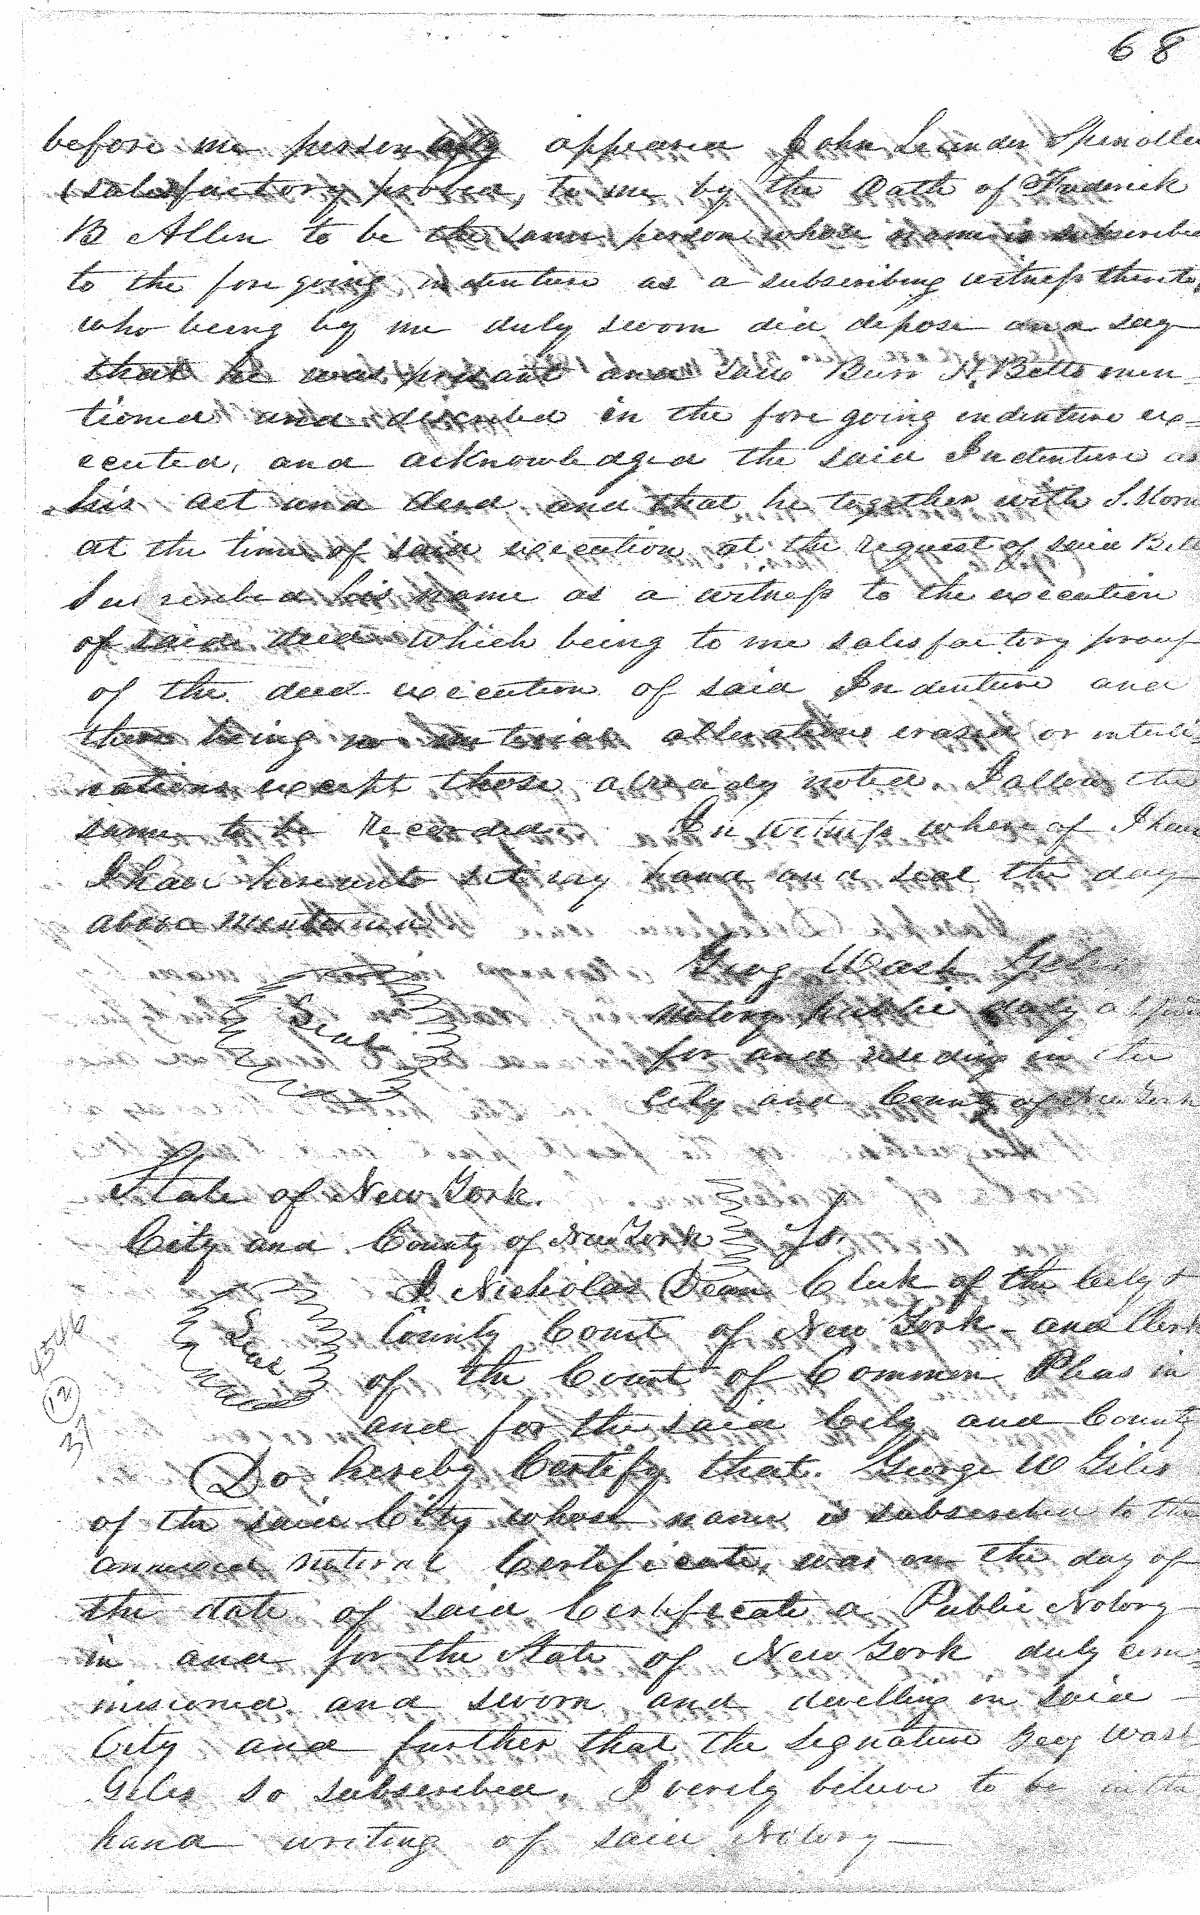 68
before me personally appeared John Leander
(satisfactory proved, to me by the oath of Frederick
B Allen to be the same person whose name is subscribed
to the fore going indenture as a subscribing witness thereto,
who being by me duly sworn did depose and say
that he was present and saw Burr H. Betts men-
tioned and described in the fore going indenture ex-
ecuted, and acknowledged the said Indenture as
his act and deed and that he together with S.
at the time of said execution at the request of said Bett
Subscribed his name as a witness to the execution
of said deed which being to me satisfactory proof
of the deed execution of said Indenture and
there being no material alterations erased or interli-
nations except those already noted. I allow the
same to be recorded. In witness where of I have
I have hereunto set my hand and seal the day
above mentioned
Geog Wash Giles
notory public duly
for and residing in the
City and County of New York
Seal
State of New York.
City and County of New York Ss.
I Nicholas Dean Clerk of the City &
County Court of New York - and Clerk
of the Court of Common Pleas in
and for the said City and County
Seal
4546
12
37
Do hereby Certify that. George W Giles
of the said City whose name is subscribed to the
annexed notoral Certificate, was on the day of
the date of said Certificate a Public Notory
in and for the State of New York duly com-
missioned and sworn and dwelling in said
City and further that the signature Geog Wash
Giles so subscribed, I verily believe to be in the
hand writing of said Notory